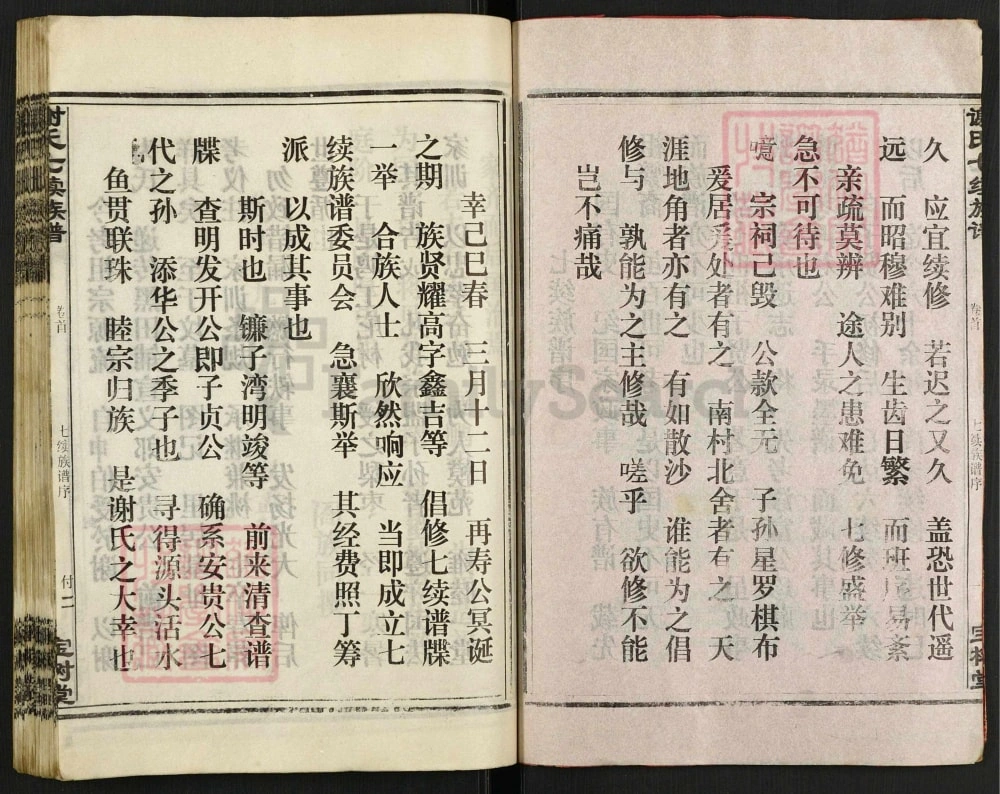 久　应宜续修　若迟之又久　盖恐世代遥
远　而昭穆难别　生齿日繁　而班序易紊
亲疏莫辨　途人之患难免　七修盛举
急不可待也
噫　宗祠己毁　公款全无　子孙星罗棋布
爰居爰处者有之　南村北舍者有之　天
涯地角者亦有之　有如散沙　谁能为之倡
修与　孰能为之主修哉　嗟乎　欲修不能
岂不痛哉
谢氏七续族谱
卷首
七续族谱序
宝树堂
幸己巳春　三月十二日　再寿公冥诞
之期　族贤耀高字鑫吉等　倡修七续谱牒
一举　合族人士　欣然响应　当即成立七
续族谱委员会　急襄斯举　其经费照丁筹
派　以成其事也
斯时也　镰子湾明竣等　前来清查谱
牒　查明发开公即子贞公　确系安贵公七
代之孙　添华公之季子也　寻得源头活水
鱼贯联珠　睦宗归族　是谢氏之大幸也
谢氏七续族谱
卷首
七续族谱序
付二
宝树堂
FamilySearch